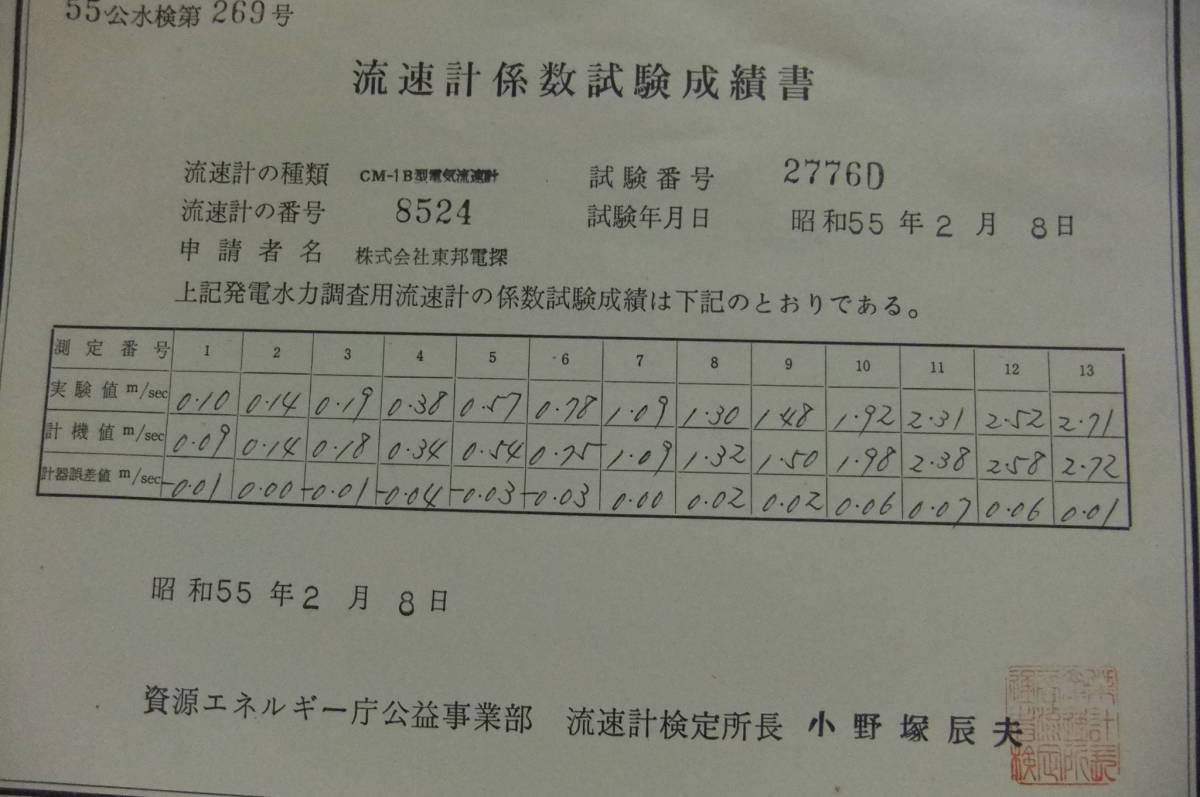 55公水検第269号
流速計係数試験成績書
流速計の種類 CM-1B型電気流速計 試験番号 2776D
流速計の番号 8524 試験年月日 昭和55年2月8日
申請者名 株式会社東邦電探
上記発電水力調査用流速計の係数試験成績は下記のとおりである。
測定番号 1 2 3 4 5 6 7 8 9 10 11 12 13
実験値 m/sec 0.10 0.14 0.19 0.38 0.57 0.78 1.09 1.30 1.48 1.92 2.31 2.52 2.71
計機値 m/sec 0.09 0.14 0.18 0.34 0.54 0.75 1.09 1.32 1.50 1.98 2.38 2.58 2.72
計器誤差値 m/sec -0.01 0.00 -0.01 -0.04 -0.03 -0.03 0.00 0.02 0.02 0.06 0.07 0.06 0.01
昭和55年2月8日
資源エネルギー庁公益事業部 流速計検定所長 小野塚辰夫